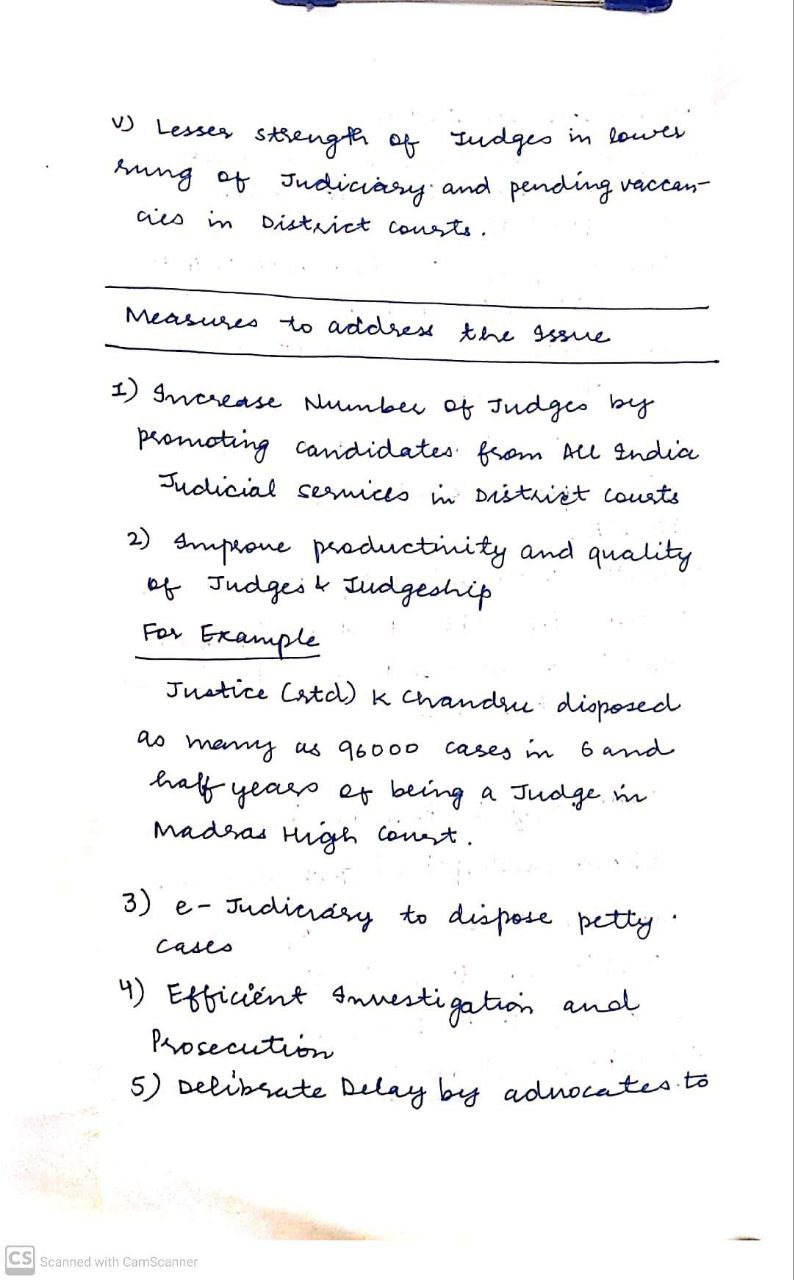 v) Lesser strength of Judges in lower
rung of Judiciary and pending vaccan-
cies in District courts.
Measures to address the Issue
1) Increase Number of Judges by
promoting candidates from All India
Judicial services in District courts
2) Improve productivity and quality
of Judges & Judgeship
For Example
Justice (rtd) K Chandru disposed
as many as 96000 cases in 6 and
half years of being a Judge in
Madras High Court.
3) e-Judiciary to dispose petty
cases
4) Efficient Investigation and
Prosecution
5) Deliberate Delay by advocates to
CS Scanned with CamScanner